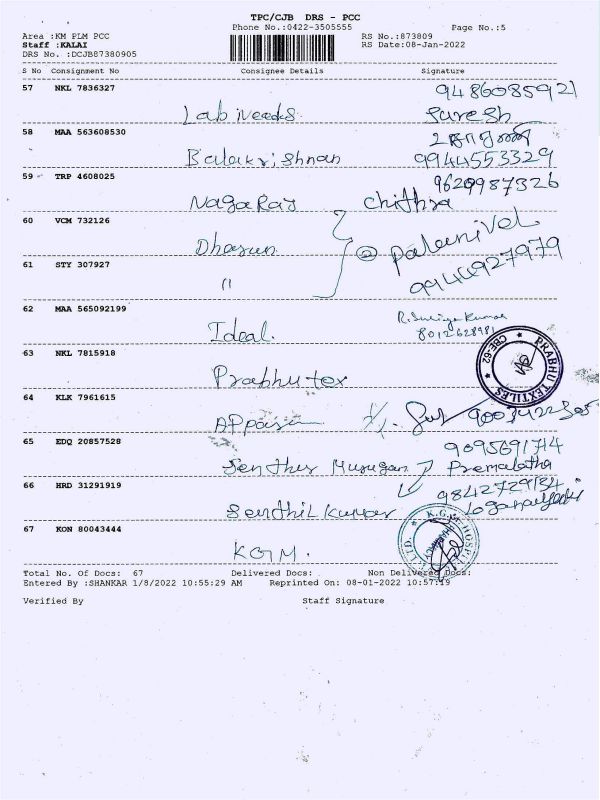 TPC/CJB DRS - PCC
Phone No.:0422-3505555 Page No.:5
Area :KM PLM PCC RS No.:873809
Staff :KALAI RS Date:08-Jan-2022
DRS No. :DCJB87380905
S No Consignment No Consignee Details Signature
57 NKL 7836327 9486085921
Lab Needs Suresh
58 MAA 563608530
Balakrishnan 9944553329
59 TRP 4608025 9629987326
Nagaraj Chithra
60 VCM 732126
Dharun Palanivel
61 STY 307927 9944927979
"
62 MAA 565092199
Ideal. 8012628981
63 NKL 7815918
Prabhu tex
PRABHU TEXTILES CBE-62
64 KLK 7961615
65 EDQ 20857528 9095691714
Senthur Murugan Premalatha
66 HRD 31291919
Senthil kumar
67 KON 80043444
KGM.
Total No. Of Docs: 67 Delivered Docs: Non Delivered Docs:
Entered By :SHANKAR 1/8/2022 10:55:29 AM Reprinted On: 08-01-2022 10:57:19
Verified By Staff Signature